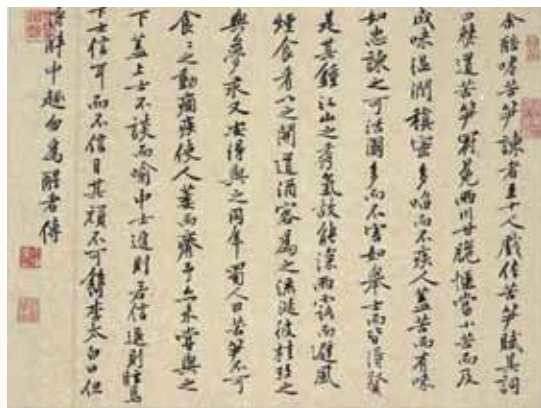 余酷嗜苦筍諫者至十人戲作苦筍賦其詞
曰僰道苦筍冠冕兩川甘脆愜當小苦而及
成味溫潤稹密多啗而不疾人蓋苦而有味
如忠諫之可活國多而不害如舉士而皆得賢
是其鍾江山之秀氣故能深雨露而避風
煙食肴以之開道酒客為之流涎彼桂之
與夢永又安得與之同年蜀人曰苦筍不可
食〻之動痼疾使人萎而瘠予亦未嘗與之
下蓋上士不談而喻中士進則若信退則眩焉
下士信耳而不信目其頑不可鐫李太白曰但
得醉中趣勿為醒者傳